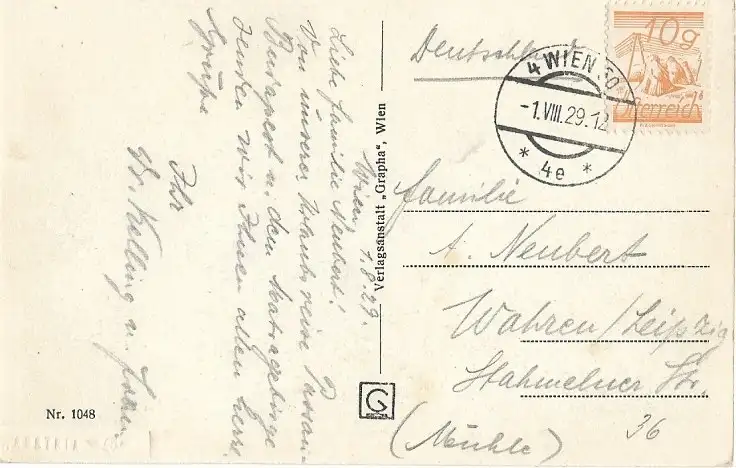 Wien, 1.8.29.
Liebe Familie Neubert!
Von unserer Urlaubsreise Passau-
Budapest u. dem Matragebirge
senden wir Ihnen allen herzl.
Grüße
Ihr
Kelling u. Frau
Nr. 1048
Verlagsanstalt „Grapha“, Wien
Deutschland
10g
Österreich
4 WIEN 50
-1.VIII.29.12
* 4e *
Familie
A. Neubert
Wahren/Leipzig
Stahmelner Str.
36
(Mühle)